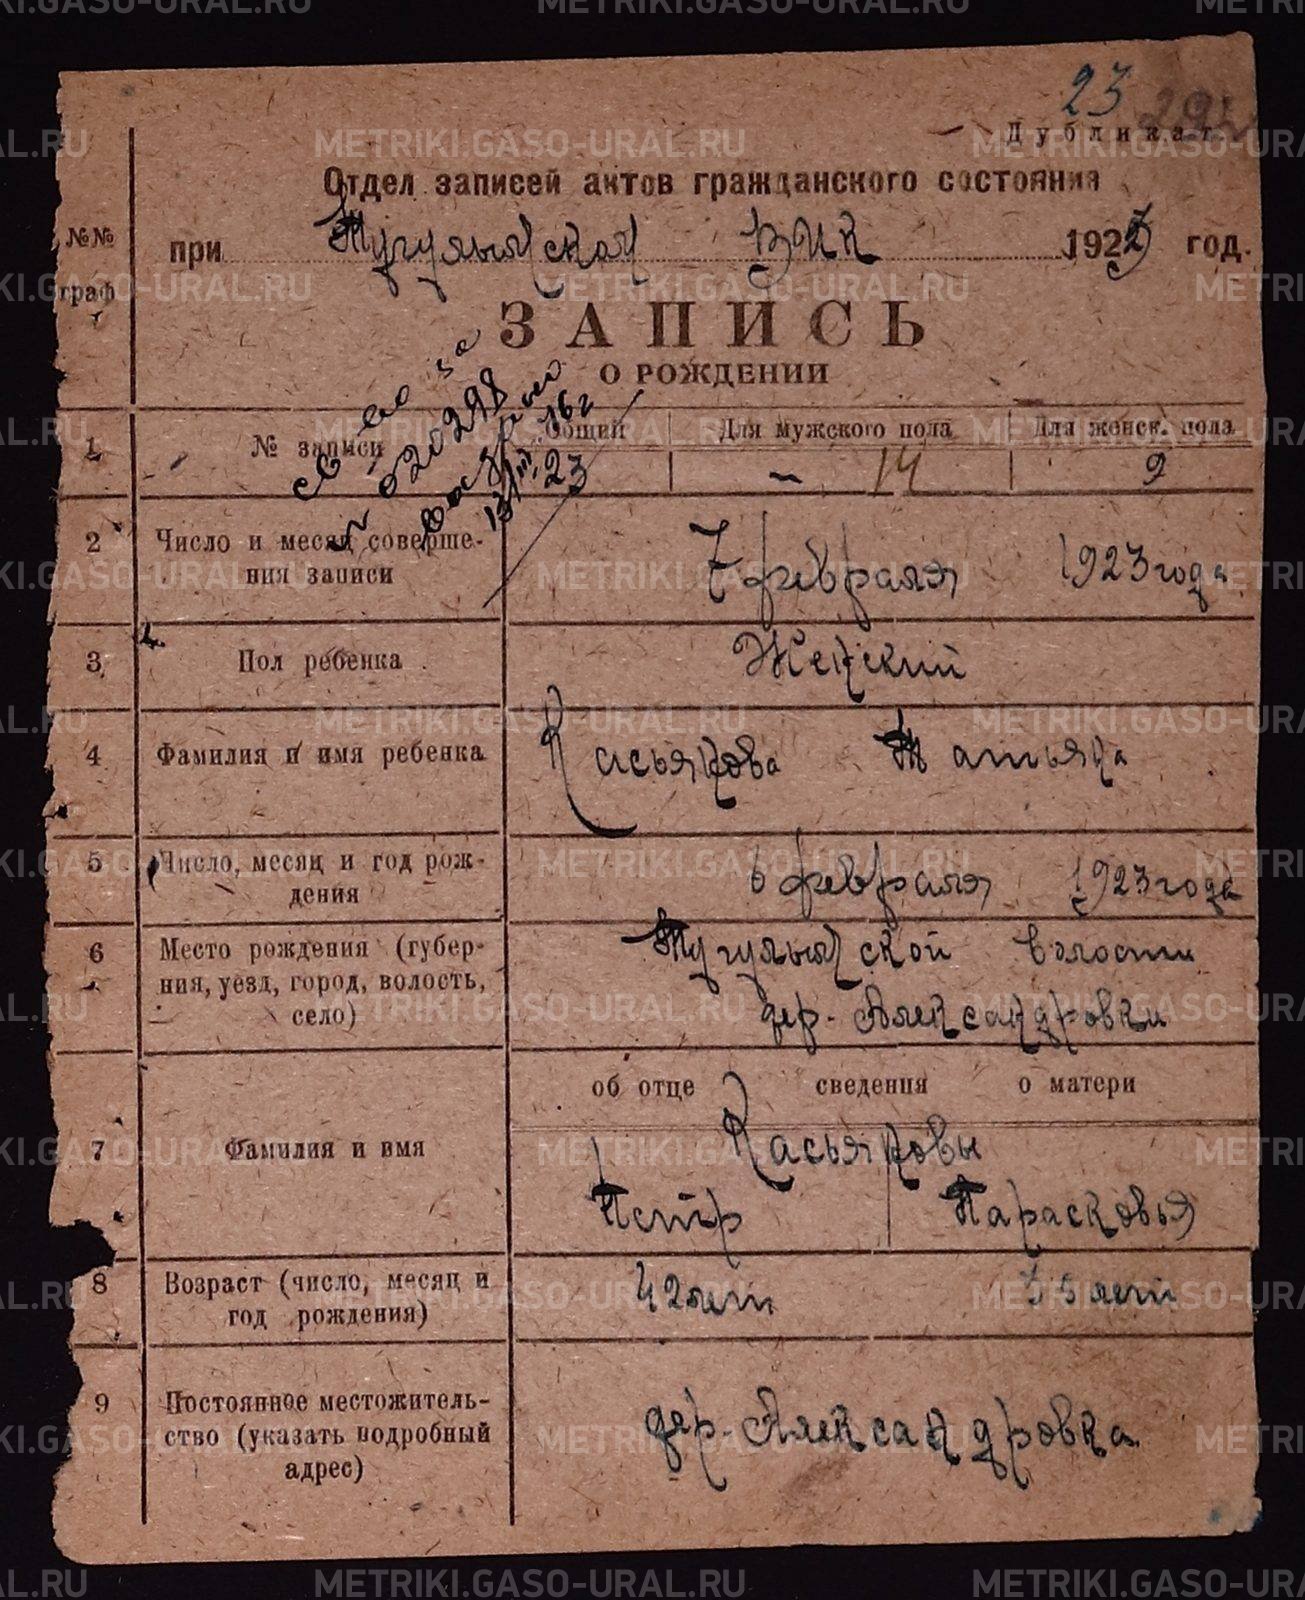 METRIKI.GASO-URAL.RU
23 292
Дубликат
Отдел записей актов гражданского состояния
при Тугулымском ВИК 1923 год.
№№ граф
ЗАПИСЬ
О РОЖДЕНИИ
св во за
№ 020298
1 № записи Общий Для мужского пола Для женск. пола
23 — 14 9
2 Число и месяц соверше-
ния записи
7 февраля 1923 года
3 Пол ребенка Женский
4 Фамилия и имя ребенка Касьянова Татьяна
5 Число, месяц и год рож-
дения
6 февраля 1923 года
6 Место рождения (губер-
ния, уезд, город, волость,
село)
Тугулымской волости
дер. Александровки
об отце сведения о матери
7 Фамилия и имя Касьяновы
Петр Парасковья
8 Возраст (число, месяц и
год рождения)
42 лет 35 лет
9 Постоянное местожитель-
ство (указать подробный
адрес)
дер. Александровка